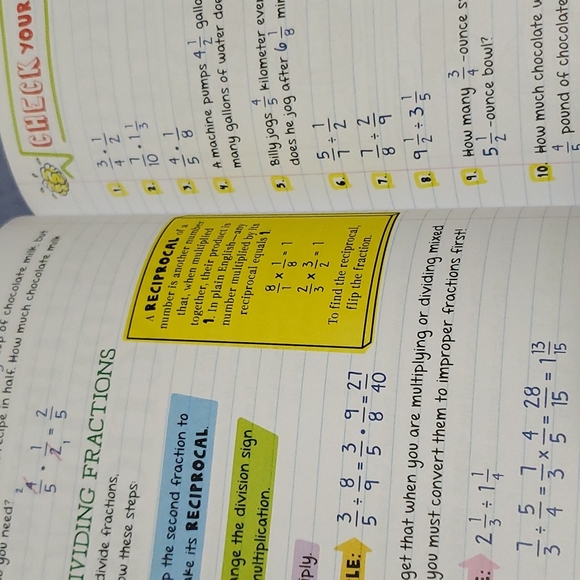 of chocolate milk, but
in half. How much chocolate milk
you need?
4/5 · 1/2 = 2/5
2 1
IVIDING FRACTIONS
divide fractions,
ow these steps:
p the second fraction to
ake its RECIPROCAL.
ange the division sign
multiplication.
iply.
A RECIPROCAL of a
number is another number
that, when multiplied
together, their product is
1. In plain English—any
number multiplied by its
reciprocal equals 1.
8/1 x 1/8 = 1
2/3 x 3/2 = 1
To find the reciprocal,
flip the fraction.
LE: 3/5 ÷ 8/9 = 3/5 · 9/8 = 27/40
get that when you are multiplying or dividing mixed
you must convert them to improper fractions first!
E: 2 1/3 ÷ 1 1/4
7/3 ÷ 5/4 = 7/3 x 4/5 = 28/15 = 1 13/15
CHECK YOUR
1. 3/4 · 1/2
2. 7/10 · 1 1/3
3. 4/5 · 1/8
4. A machine pumps 4 1/2 gallo
many gallons of water doe
5. Billy jogs 4/5 kilometer ever
does he jog after 6 1/8 min
6. 5/7 ÷ 1/2
7. 7/8 ÷ 2/9
8. 9 1/2 ÷ 3 1/5
9. How many 3/4-ounce s
5 1/2-ounce bowl?
10. How much chocolate w
4/5 pound of chocolate